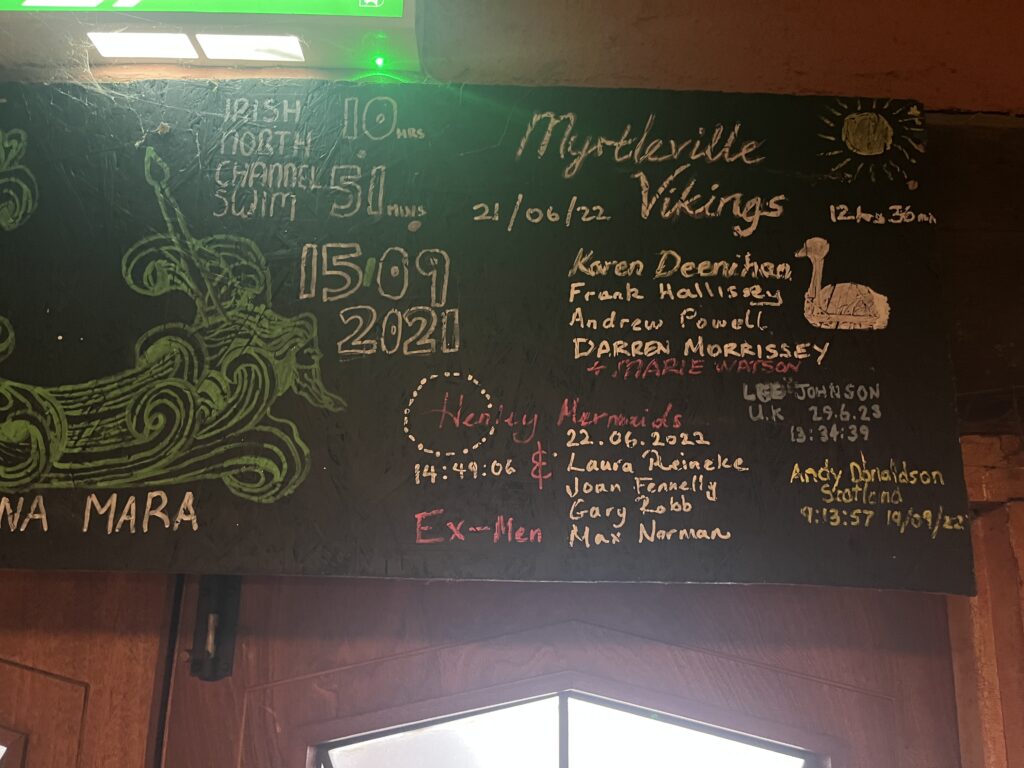 IRISH
NORTH
CHANNEL
SWIM
10 HRS
51 MINS
15/09
2021
NA MARA
Myrtleville
Vikings
21/06/22
12 hrs 36 min
Karen Deenihan
Frank Hallissey
Andrew Powell
DARREN MORRISSEY
+ MARIE WATSON
Henley Mermaids
22.06.2022
14:49:06
&
Laura Reineke
Joan Fennelly
Gary Robb
Ex-Men
Max Norman
LEE JOHNSON
U.K 29.6.23
13:34:39
Andy Donaldson
Scotland
9:13:57 19/09/22